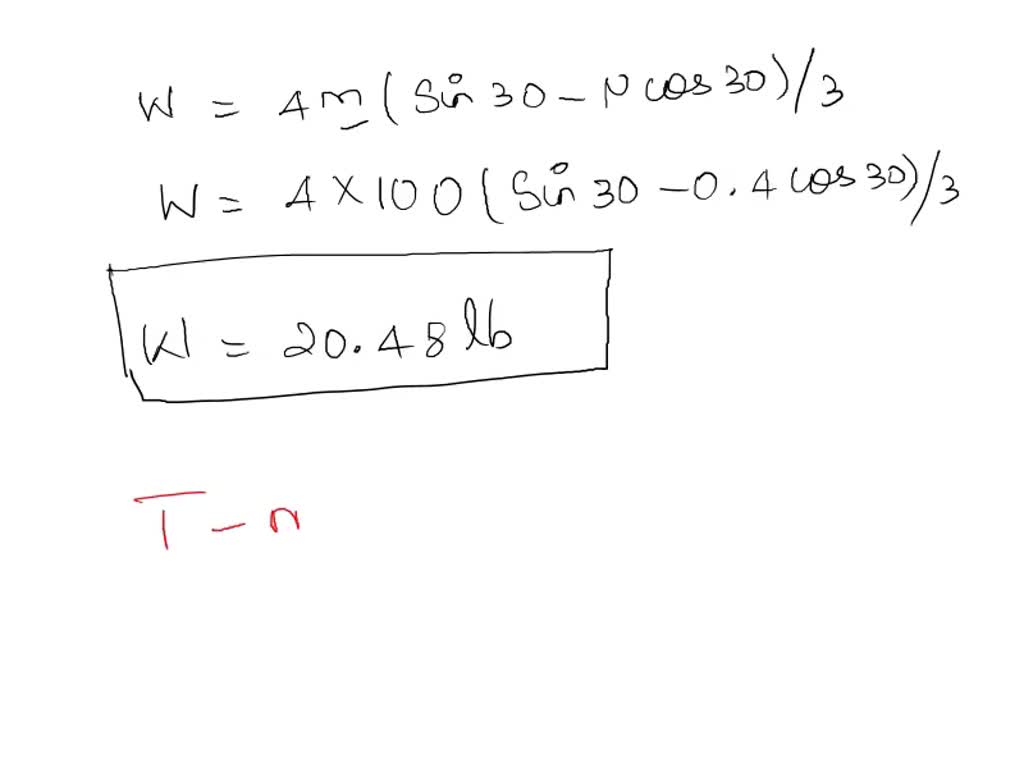 W = 4m(Sin 30 - μ cos 30)/3
W = 4×100(Sin 30 - 0.4 cos 30)/3
W = 20.48 lb
T - n